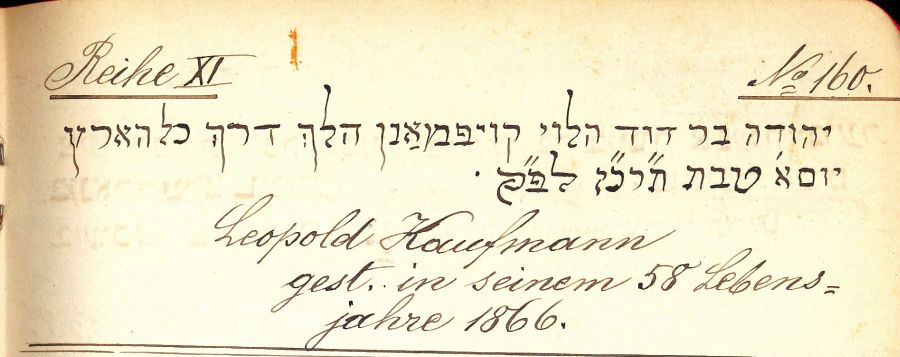 Reihe XI
No 160.
יהודה בר דוד הלוי קויפמאַנן הלך דרך כל הארץ
יום א' טבת תרכ"ז לפ"ק.
Leopold Kaufmann
gest. in seinem 58 Lebens=
jahre 1866.